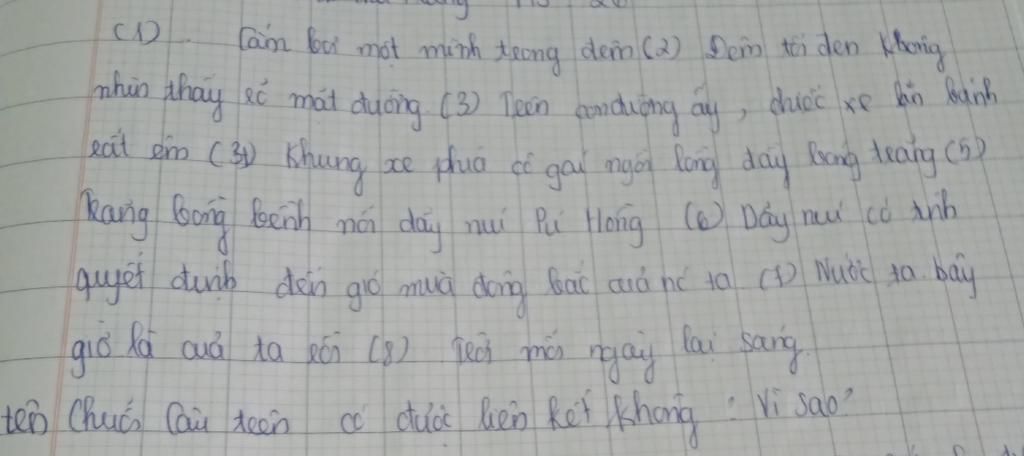 (1) Cắm bơi một mình trong đêm (2) Đêm tối đen không
nhìn thấy rõ mặt đường (3) Trên con đường ấy, chiếc xe lăn bánh
rất êm (4) Khung xe phía cô gái ngồi lồng đầy bóng trăng (5)
Trăng bồng bềnh nổi dãy núi Pú Hồng (6) Dãy núi có ảnh
quyết định đến gió mùa đông Bắc của nc ta (7) Nước ta bây
giờ là của ta rồi (8) Trời mới ngày lại sáng.
Chuỗi câu trên có được liên kết không? Vì sao?